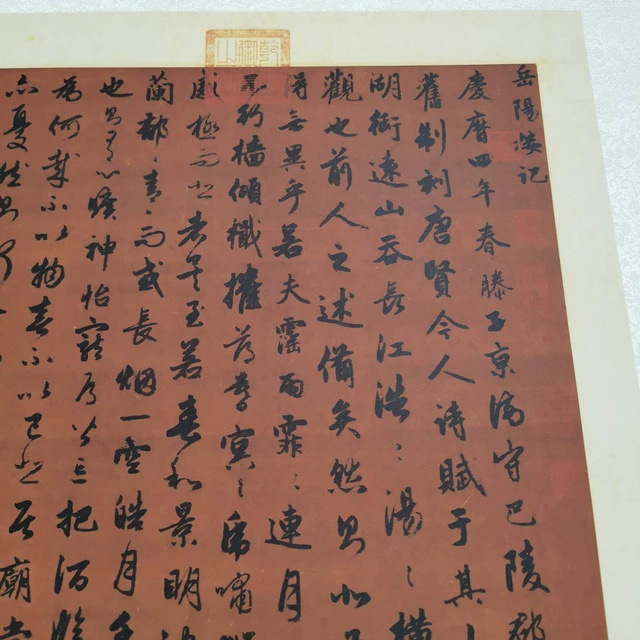 岳陽樓记
慶曆四年春滕子京謫守巴陵郡
舊制刻唐賢今人诗賦于其上
湖銜遠山吞長江浩々湯々橫
觀也前人之述備矣然则北
得無異乎若夫霪雨霏々連月
行檣傾檝摧薄暮冥々虎嘯
感極而悲者矣至若春和景明波
蘭郁々青々而或長烟一空皓月千
也则有心曠神怡寵辱皆忘把酒臨
為何哉不以物喜不以己悲居廟堂
亦憂然则何